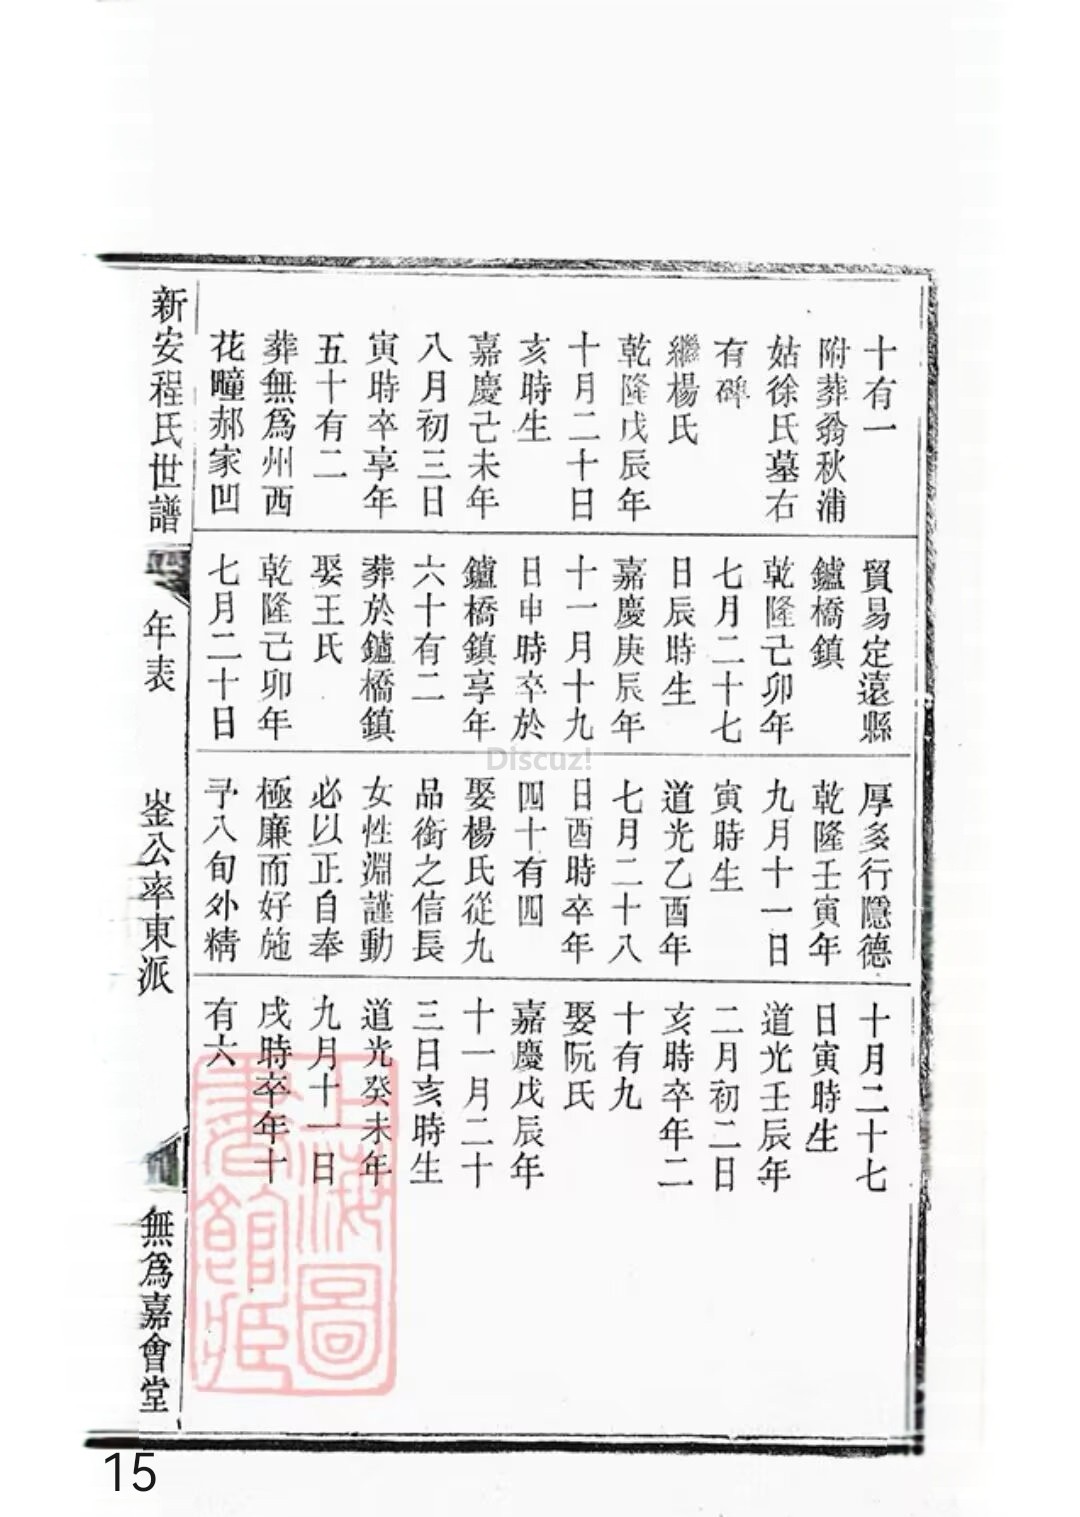 十有一
附葬翁秋浦
姑徐氏墓右
有碑
繼楊氏
乾隆戊辰年
十月二十日
亥時生
嘉慶己未年
八月初三日
寅時卒享年
五十有二
葬無爲州西
花疃郝家凹
貿易定遠縣
鑪橋鎮
乾隆己卯年
七月二十七
日辰時生
嘉慶庚辰年
十一月十九
日申時卒於
鑪橋鎮享年
六十有二
葬於鑪橋鎮
娶王氏
乾隆己卯年
七月二十日
厚多行隱德
乾隆壬寅年
九月十一日
寅時生
道光乙酉年
七月二十八
日酉時卒年
四十有四
娶楊氏從九
品銜之信長
女性淵謹動
必以正自奉
極廉而好施
予八旬外精
十月二十七
日寅時生
道光壬辰年
二月初二日
亥時卒年二
十有九
娶阮氏
嘉慶戊辰年
十一月二十
三日亥時生
道光癸未年
九月十一日
戌時卒年十
有六
新安程氏世譜
年表
崟公率東派
無爲嘉會堂
上海圖
書館藏
Discuz!
15